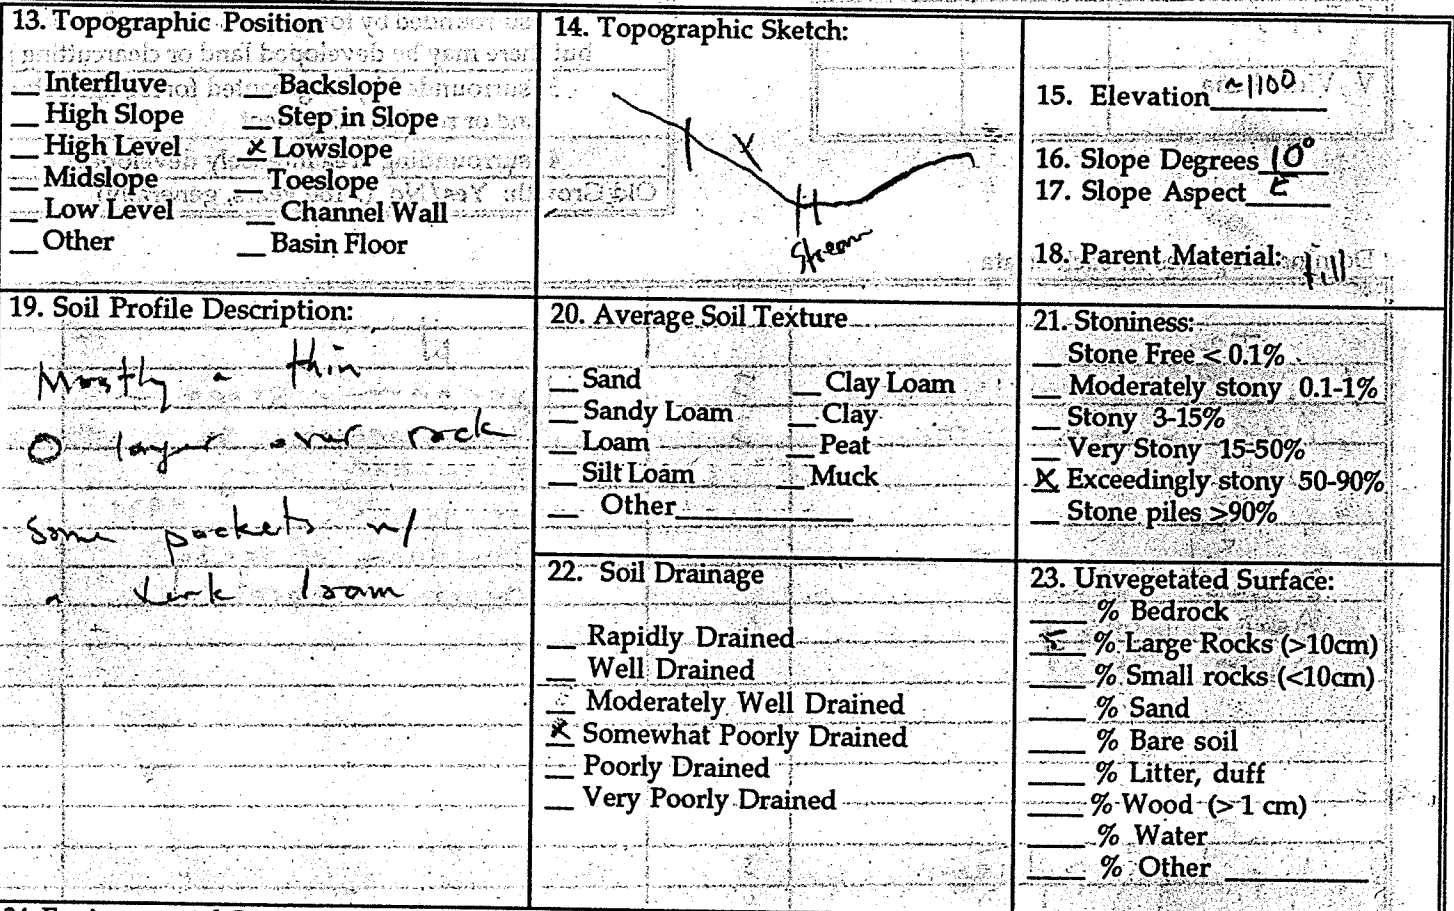 13. Topographic Position
__ Interfluve __ Backslope
__ High Slope __ Step in Slope
__ High Level x Lowslope
__ Midslope __ Toeslope
__ Low Level __ Channel Wall
__ Other __ Basin Floor
14. Topographic Sketch:
X
Stream
15. Elevation ~1100
16. Slope Degrees 10°
17. Slope Aspect E
18. Parent Material: till
19. Soil Profile Description:
Mostly a thin
O layer over rock
Some pockets w/
a loam
20. Average Soil Texture
__ Sand __ Clay Loam
__ Sandy Loam __ Clay
__ Loam __ Peat
__ Silt Loam __ Muck
__ Other__________
21. Stoniness:
__ Stone Free < 0.1%
__ Moderately stony 0.1-1%
__ Stony 3-15%
__ Very Stony 15-50%
X Exceedingly stony 50-90%
__ Stone piles >90%
22. Soil Drainage
__ Rapidly Drained
__ Well Drained
__ Moderately Well Drained
X Somewhat Poorly Drained
__ Poorly Drained
__ Very Poorly Drained
23. Unvegetated Surface:
____ % Bedrock
5 % Large Rocks (>10cm)
____ % Small rocks (<10cm)
____ % Sand
____ % Bare soil
____ % Litter, duff
____ % Wood (> 1 cm)
____ % Water
____ % Other __________